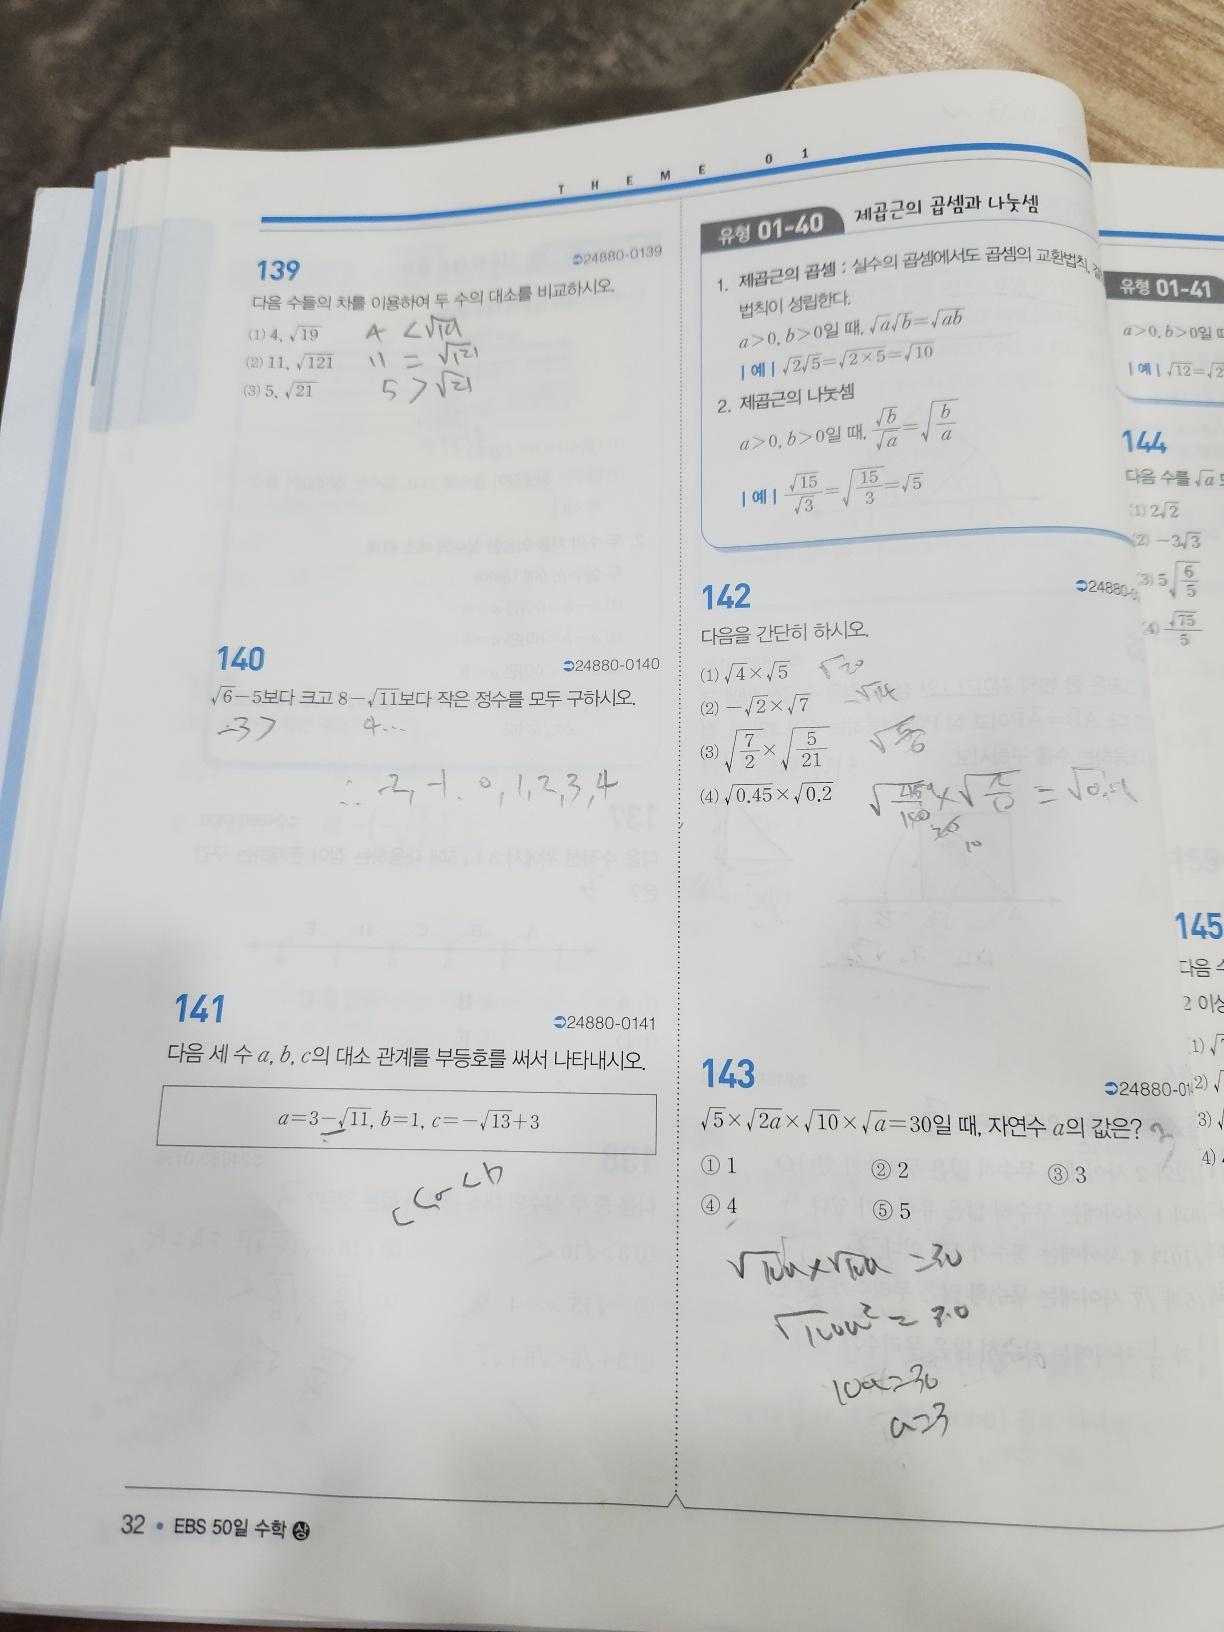 THEME 01
139
24880-0139
다음 수들의 차를 이용하여 두 수의 대소를 비교하시오.
(1) 4, √19 4 < √19
(2) 11, √121 11 = √121
(3) 5, √21 5 > √21
140
24880-0140
√6-5보다 크고 8-√11보다 작은 정수를 모두 구하시오.
-3> 4...
∴ -2, -1, 0, 1, 2, 3, 4
141
24880-0141
다음 세 수 a, b, c의 대소 관계를 부등호를 써서 나타내시오.
a=3-√11, b=1, c=-√13+3
c<a<b
유형 01-40 제곱근의 곱셈과 나눗셈
1. 제곱근의 곱셈 : 실수의 곱셈에서도 곱셈의 교환법칙,
법칙이 성립한다.
a>0, b>0일 때, √a√b=√ab
|예| √2√5=√2×5=√10
2. 제곱근의 나눗셈
a>0, b>0일 때, √b/√a=√(b/a)
|예| √15/√3=√(15/3)=√5
142
24880-0
다음을 간단히 하시오.
(1) √4×√5 √20
(2) -√2×√7 -√14
(3) √(7/2)×√(5/21)
(4) √0.45×√0.2
143
24880-01
√5×√2a×√10×√a=30일 때, 자연수 a의 값은? 3
① 1 ② 2 ③ 3
④ 4 ⑤ 5
√10a×√10a =30
√100a² = 30
10a=30
a=3
유형 01-41
a>0, b>0일 때
|예| √12=√2
144
다음 수를 √a
(1) 2√2
(2) -3√3
(3) 5√(6/5)
(4) √75/5
145
다음 수
2 이상
1) √
2) √
3) √
4)
32 • EBS 50일 수학 상